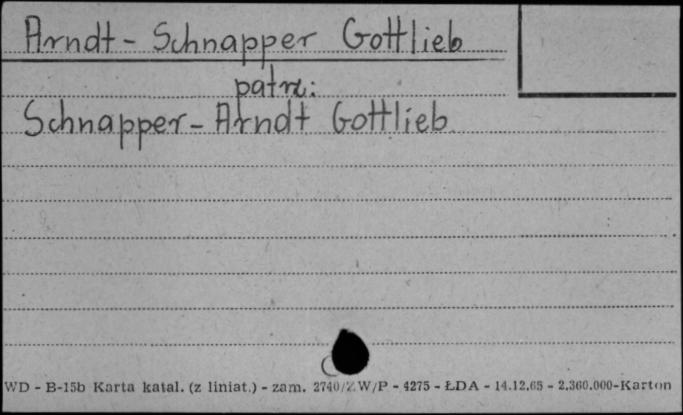 Arndt - Schnapper Gottlieb
patrz:
Schnapper - Arndt Gottlieb
WD - B-15b Karta katal. (z liniat.) - zam. 2740/Z W/P - 4275 - ŁDA - 14.12.65 - 2.360.000-Karton